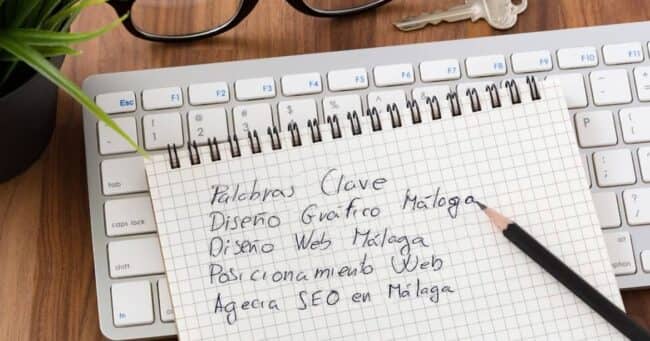 Esc F1 F2 F3 F4 F5 F6 F7 F8 F9 F10 F11
tab
caps lock
shift
Palabras Clave
Diseño Gráfico Málaga
Diseño Web Málaga
Posicionamiento Web
Agecia SEO en Málaga